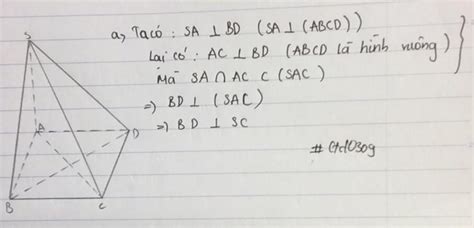 a, Ta có : SA ⊥ BD (SA ⊥ (ABCD))
Lại có : AC ⊥ BD (ABCD là hình vuông)
Mà SA ∩ AC ⊂ (SAC)
=> BD ⊥ (SAC)
=> BD ⊥ SC
S
A
D
B
C